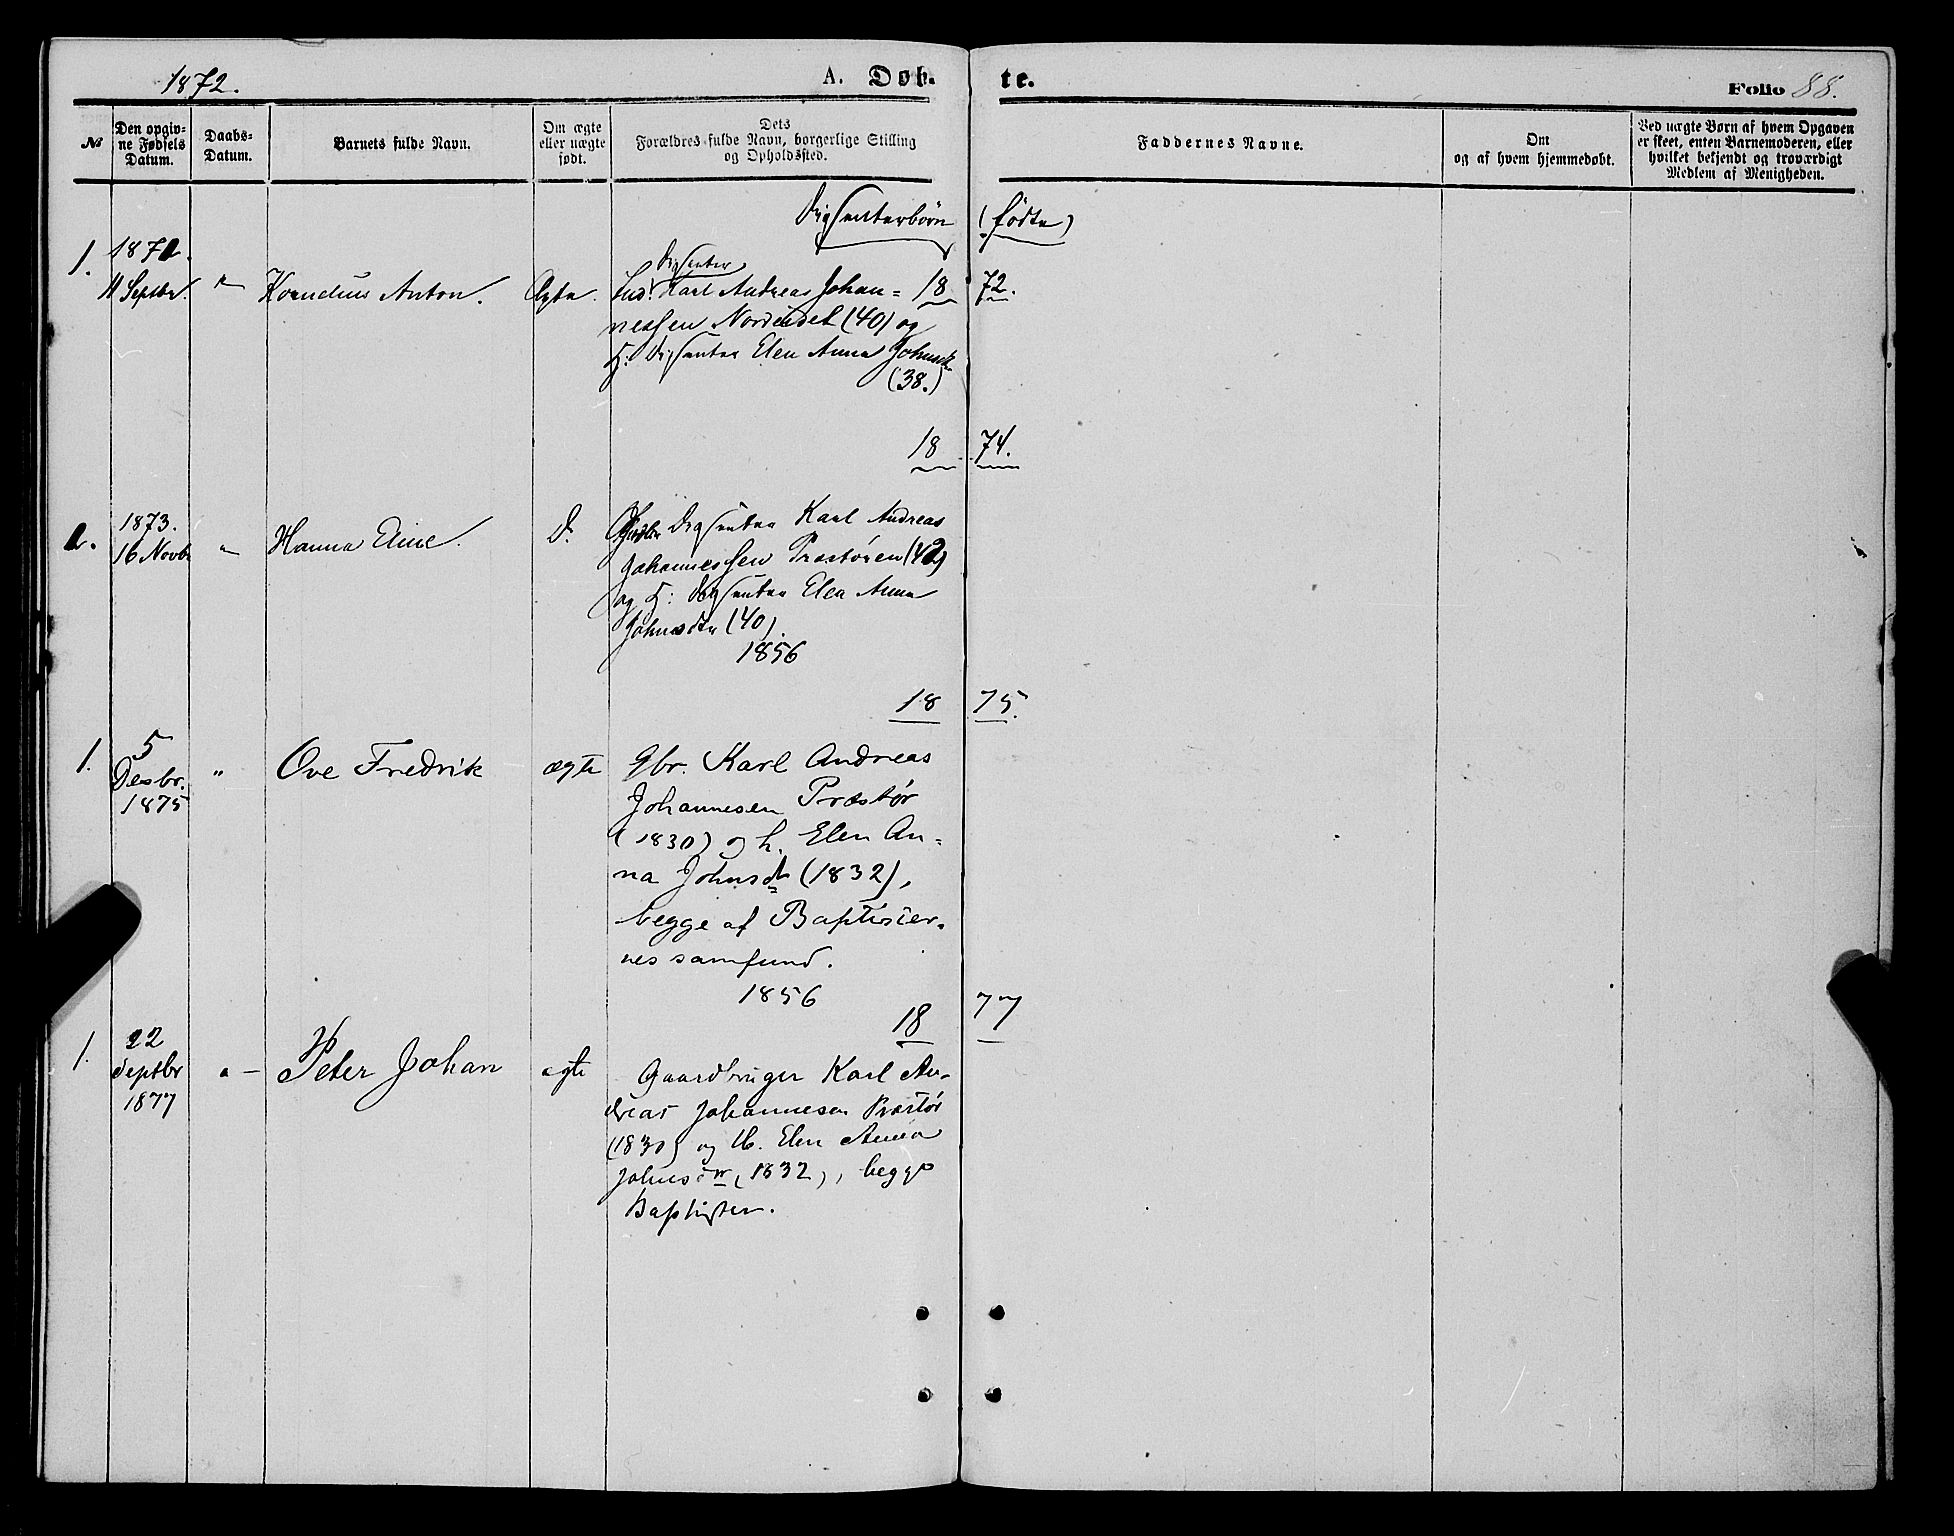 1872.
A. Døb-
te.
Folio 88.
№
Den opgiv-
ne Fødsels
Datum.
Daabs-
Datum.
Barnets fulde Navn.
Om ægte
eller uægte
født.
Dets
Forældres fulde Navn, borgerlige Stilling
og Opholdssted.
Faddernes Navne.
Om
og af hvem hjemmedøbt.
Ved uægte Børn af hvem Opgaven
er skeet, enten Barnemoderen, eller
hvilket bekjendt og troværdigt
Medlem af Menigheden.
Dissenterbørn (fødte)
1872.
1.
11 Septbr. " Kornelius Anton. Ægte.
Dissenter
Ind. Karl Andreas Johan=
nessen Nordeidet (40) og
H: Dissenter Elen Anna Johnsd.
(38.)
1872.
1874.
2.
1873.
16 Novbr. " Hanna Eline. d.
Dissenter Karl Andreas
Johannessen Præstøren (42)
og H: Dissenter Elen Anna
Johnsdtr (40).
1856
1875.
1. 5
Desbr.
1875
" Ove Fredrik ægte
Gbr. Karl Andreas
Johannesen Præstør
(1830) og h. Elen An=
na Johnsdtr (1832),
begge af Baptister-
nes samfund.
1856
1877
1. 22
Septbr
1877
" Peter Johan ægte
Gaardbruger Karl An-
dreas Johannesen Præstør
(1830) og H. Elen Anna
Johnsdtr (1832), begge
Baptister.